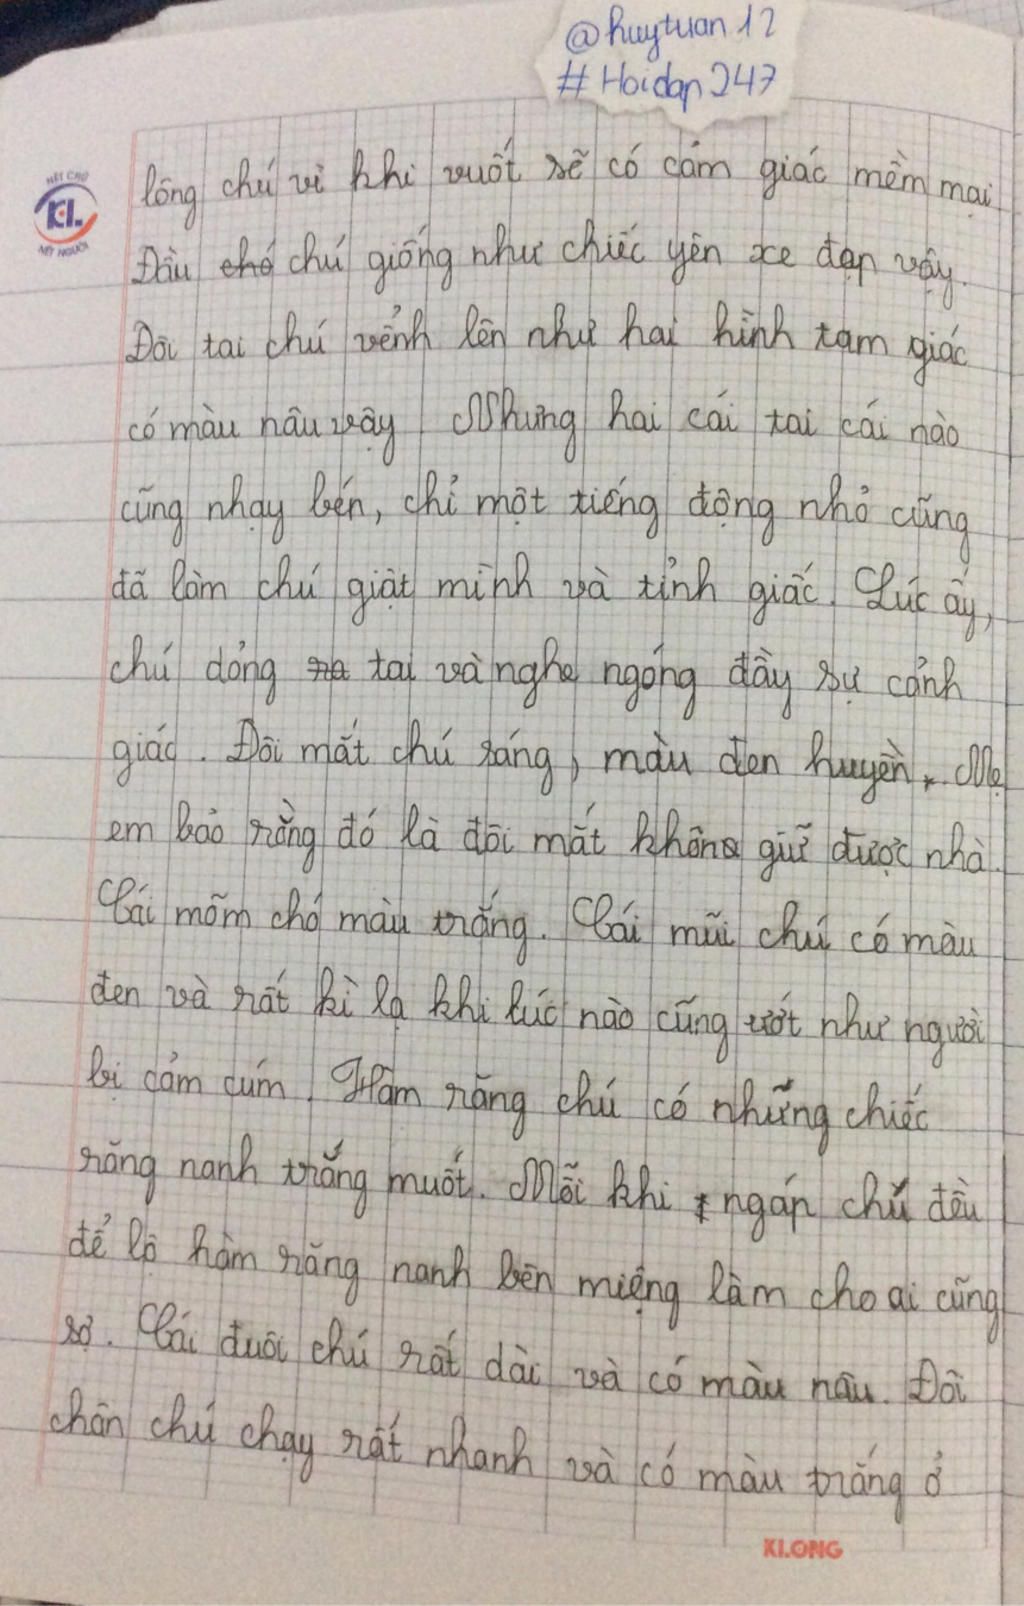 @huytuan12
#Hoidap247
NÉT CHỮ
KL
NẾT NGƯỜI
lông chú vì khi vuốt sẽ có cảm giác mềm mại
Đầu chó chú giống như chiếc yên xe đạp vậy.
Đôi tai chú vểnh lên như hai hình tam giác
có màu nâu vậy Nhưng hai cái tai cái nào
cũng nhạy bén, chỉ một tiếng động nhỏ cũng
đã làm chú giật mình và tỉnh giấc. Lúc ấy,
chú dỏng ra tai và nghe ngóng đầy sự cảnh
giác. Đôi mắt chú sáng, màu đen huyền. Mẹ
em bảo rằng đó là đôi mắt không giữ được nhà.
Cái mõm chó màu trắng. Cái mũi chú có màu
đen và rất kì lạ khi lúc nào cũng ướt như người
bị cảm cúm. Hàm răng chú có những chiếc
răng nanh trắng muốt. Mỗi khi ngáp chú đều
để lộ hàm răng nanh bên miệng làm cho ai cũng
sợ. Cái đuôi chú rất dài và có màu nâu. Đôi
chân chú chạy rất nhanh và có màu trắng ở
KLONG